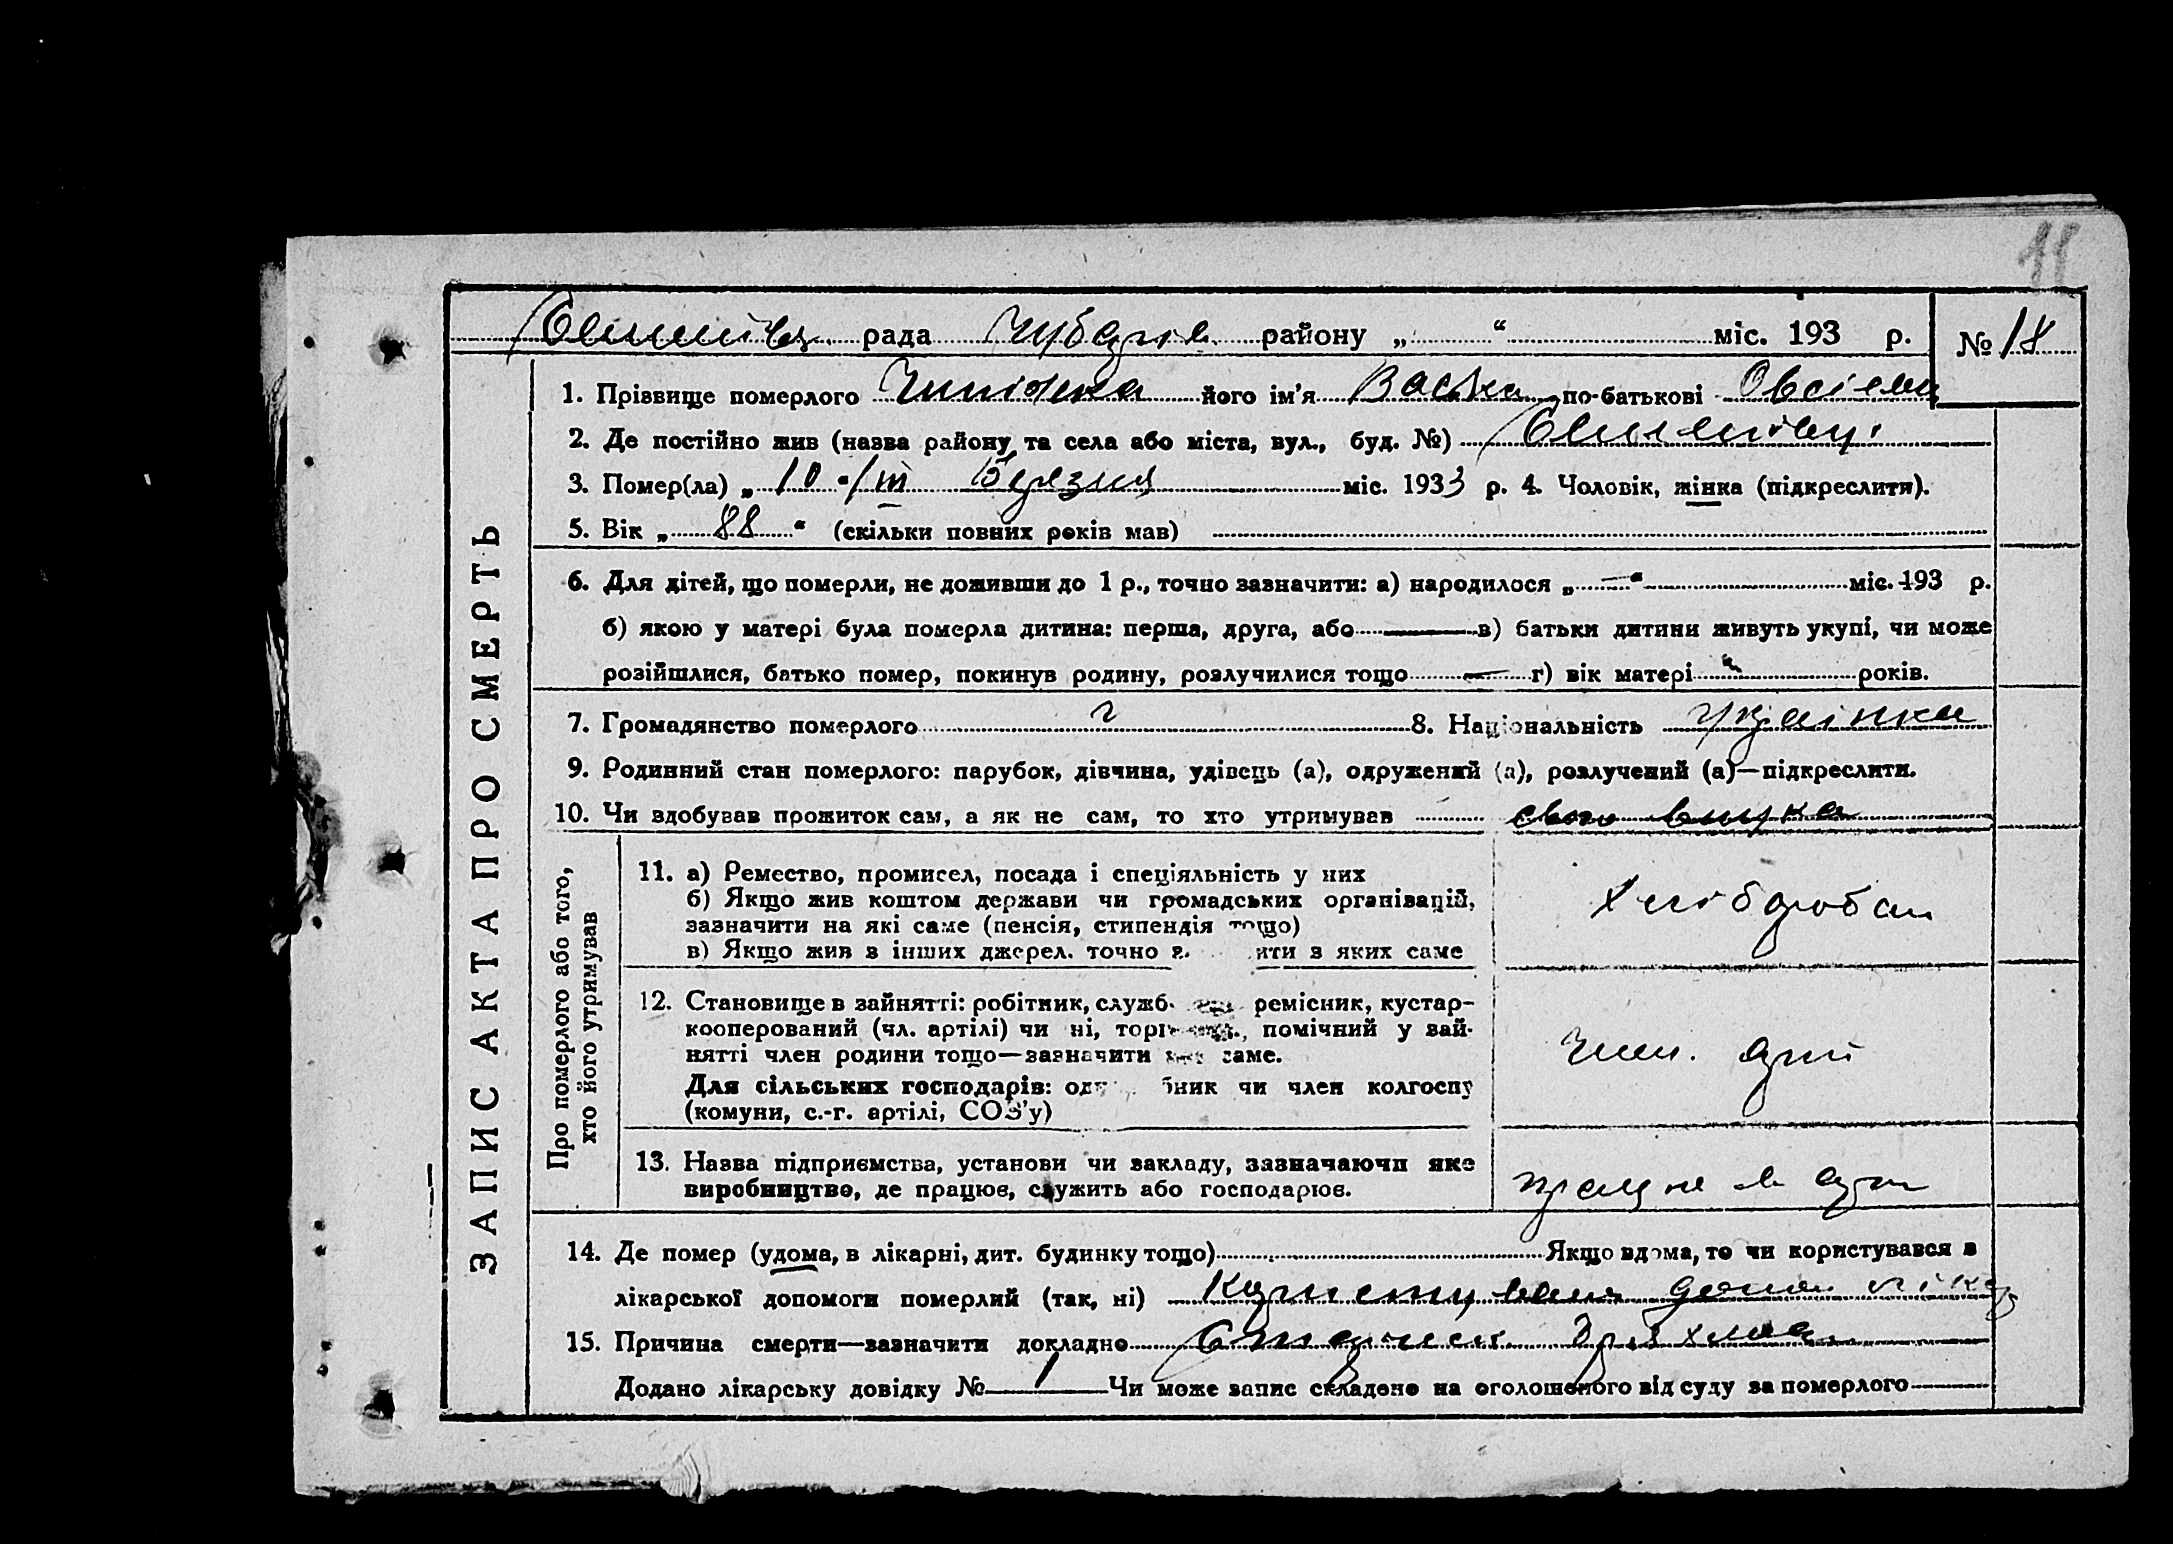 рада Чубарів району „ “ міс. 193 р. № 18
1. Прізвище померлого його ім'я Васька по-батькові Овсієвн
2. Де постійно жив (назва району та села або міста, вул., буд. №)
3. Помер(ла) „ 10 “ / III Березня міс. 1933 р. 4. Чоловік, жінка (підкреслити).
5. Вік „ 88 “ (скільки повних років мав)
6. Для дітей, що померли, не доживши до 1 р., точно зазначити: а) народилося „ — “ міс. 193 р.
б) якою у матері була померла дитина: перша, друга, або — в) батьки дитини живуть укупі, чи може
розійшлися, батько помер, покинув родину, розлучилися тощо — г) вік матері років.
7. Громадянство померлого 8. Національність Українка
9. Родинний стан померлого: парубок, дівчина, удівець (а), одружений (а), розлучений (а)—підкреслити.
10. Чи здобував прожиток сам, а як не сам, то хто утримував внука
ЗАПИС АКТА ПРО СМЕРТЬ
Про померлого або того,
хто його утримував
11. а) Ремество, промисел, посада і спеціяльність у них
б) Якщо жив коштом держави чи громадських організацій,
зазначити на які саме (пенсія, стипендія тощо)
в) Якщо жив з інших джерел, точно з ити з яких саме
Хлібороб
12. Становище в зайнятті: робітник, служб ремісник, кустар-
кооперований (чл. артілі) чи ні, торг помічний у зай-
нятті член родини тощо—зазначити саме.
Для сільських господарів: од бник чи член колгоспу
(комуни, с.-г. артілі, СОЗ'у)
13. Назва підприємства, установи чи закладу, зазначаючи яке
виробництво, де працює, служить або господарює.
працює в
14. Де помер (удома, в лікарні, дит. будинку тощо) Якщо вдома, то чи користувався з
лікарської допомоги померлий (так, ні)
15. Причина смерти—зазначити докладно
Додано лікарську довідку № Чи може запис складено на оголошеного від суду за померлого